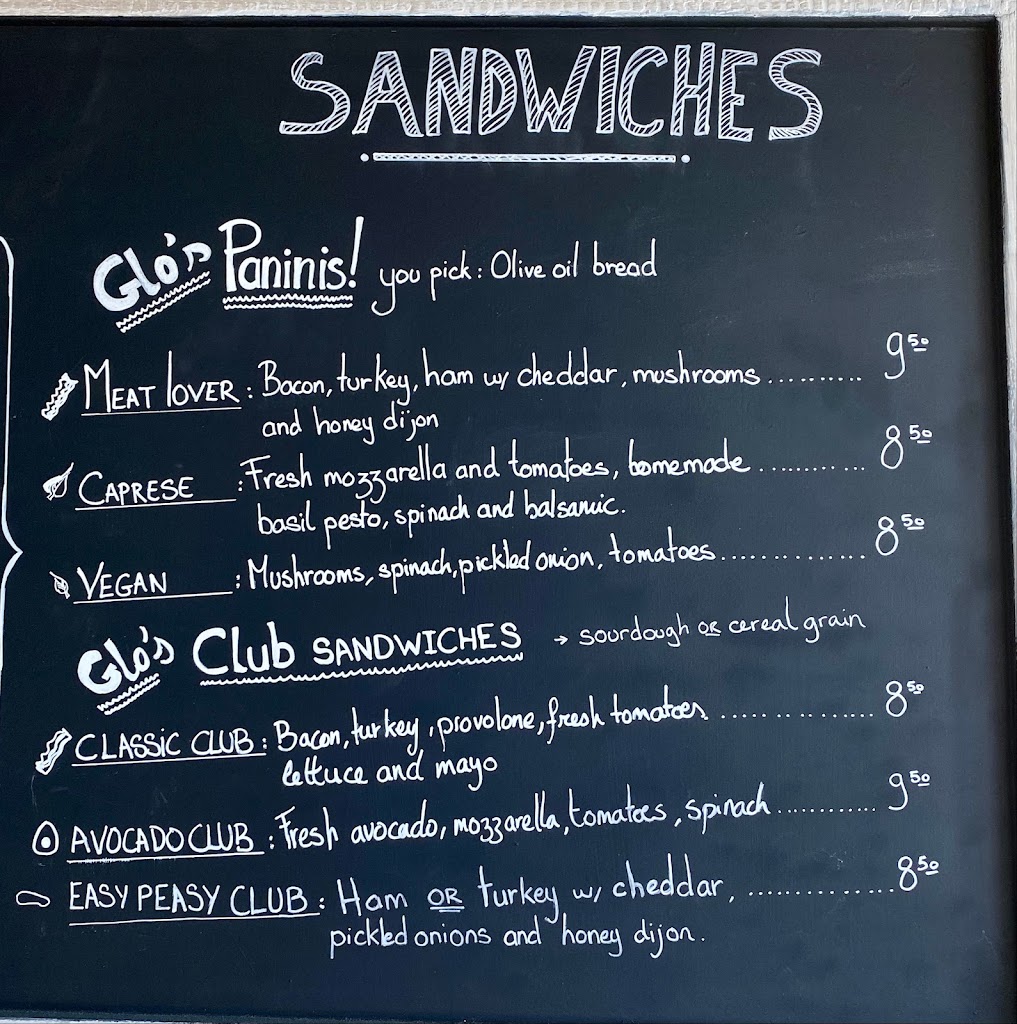 SANDWICHES
Glo's Paninis! you pick: Olive oil bread
MEAT LOVER: Bacon, turkey, ham w/ cheddar, mushrooms .......... 9 50
and honey dijon
CAPRESE : Fresh mozzarella and tomatoes, homemade ............ 8 50
basil pesto, spinach and balsamic.
VEGAN : Mushrooms, spinach, pickled onion, tomatoes ............... 8 50
Glo's Club SANDWICHES → sourdough OR cereal grain
CLASSIC CLUB: Bacon, turkey, provolone, fresh tomatoes ................ 8 50
lettuce and mayo
AVOCADO CLUB: Fresh avocado, mozzarella, tomatoes, spinach ........... 9 50
EASY PEASY CLUB: Ham OR turkey w/ cheddar, ............... 8 50
pickled onions and honey dijon.